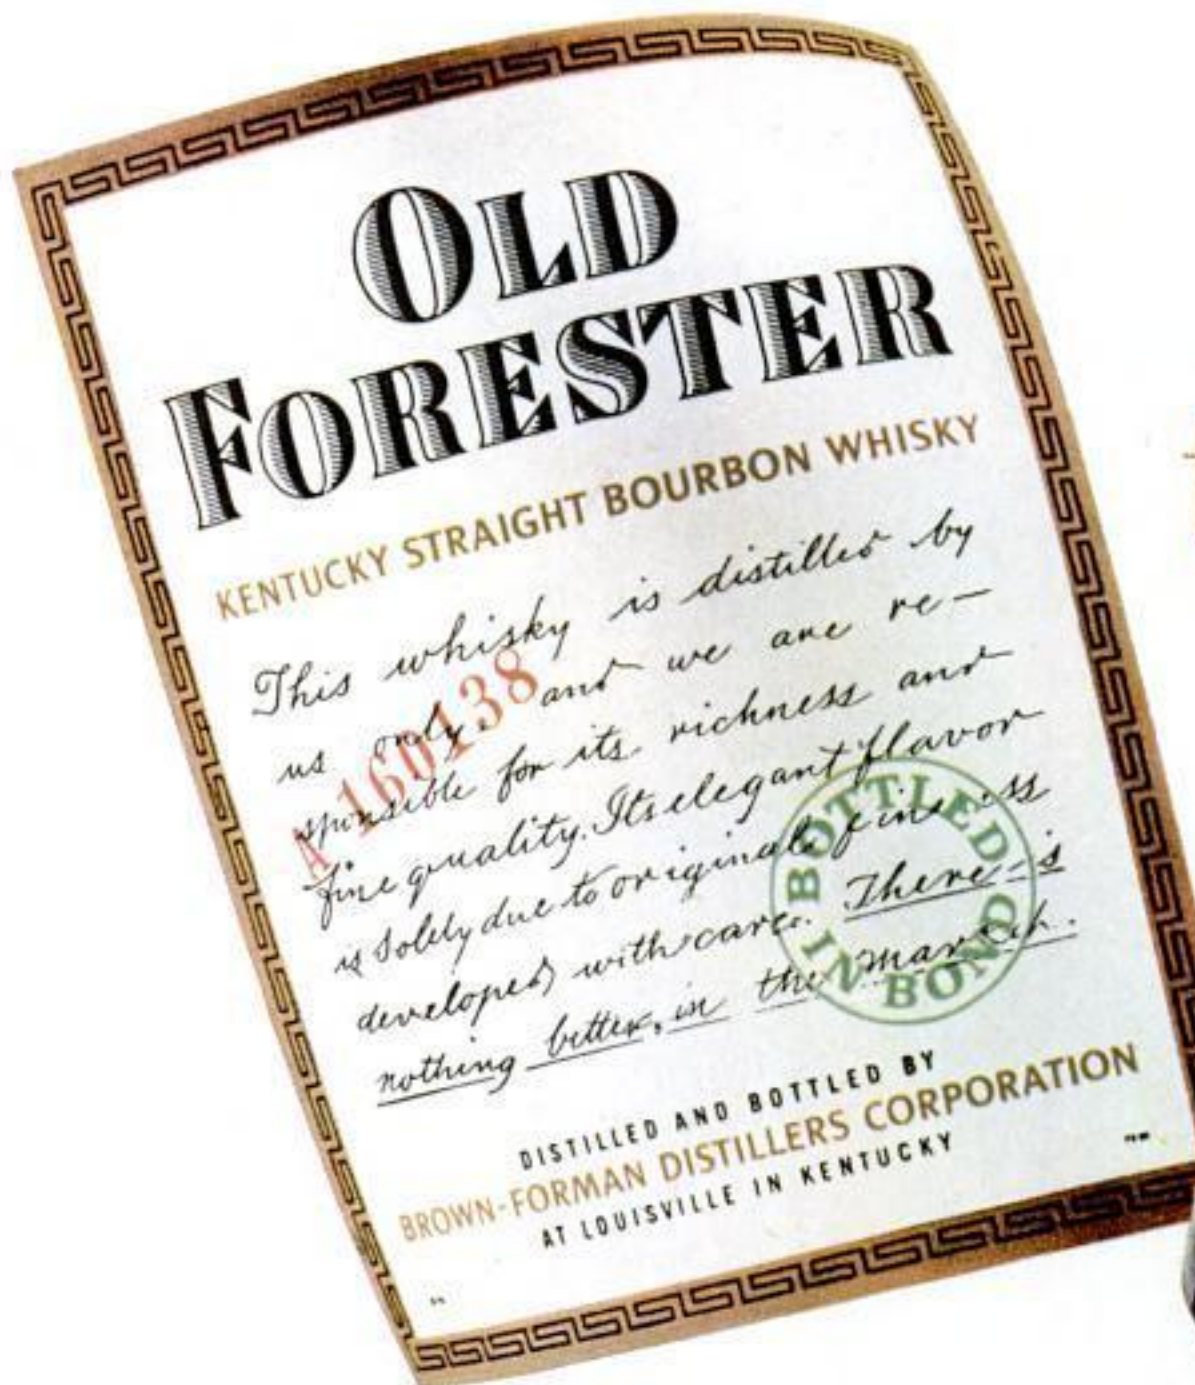 OLD
FORESTER
KENTUCKY STRAIGHT BOURBON WHISKY
This whisky is distilled by
us only, and we are re-
sponsible for its richness and
fine quality. Its elegant flavor
is solely due to original fineness
developed with care. There is
nothing better in the market.
A 160138
BOTTLED
IN BOND
DISTILLED AND BOTTLED BY
BROWN-FORMAN DISTILLERS CORPORATION
AT LOUISVILLE IN KENTUCKY